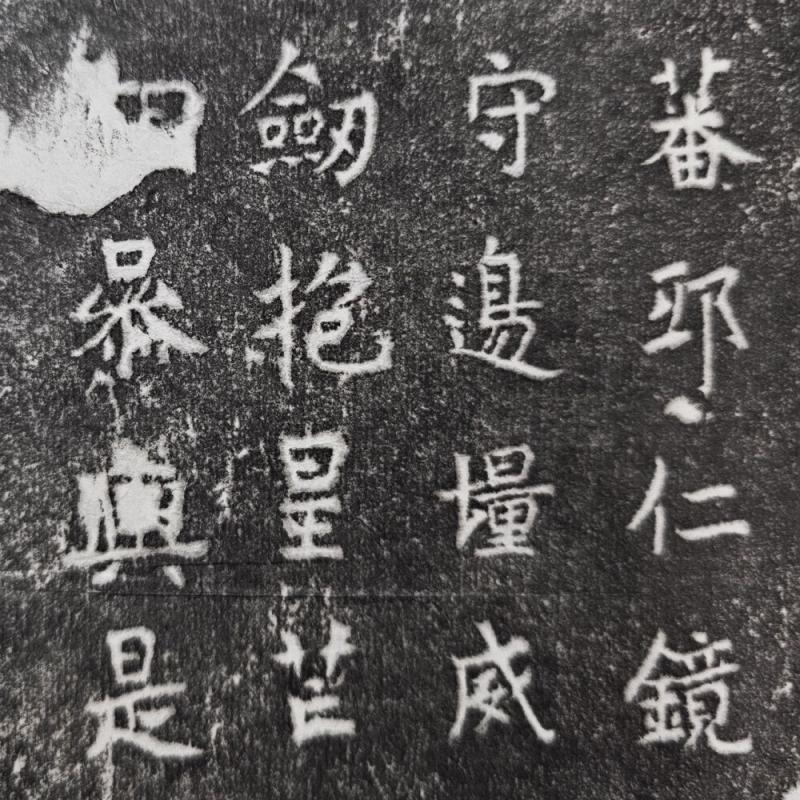 蕃邪仁鏡
守邊壃威
劒抱星芒
暴興是